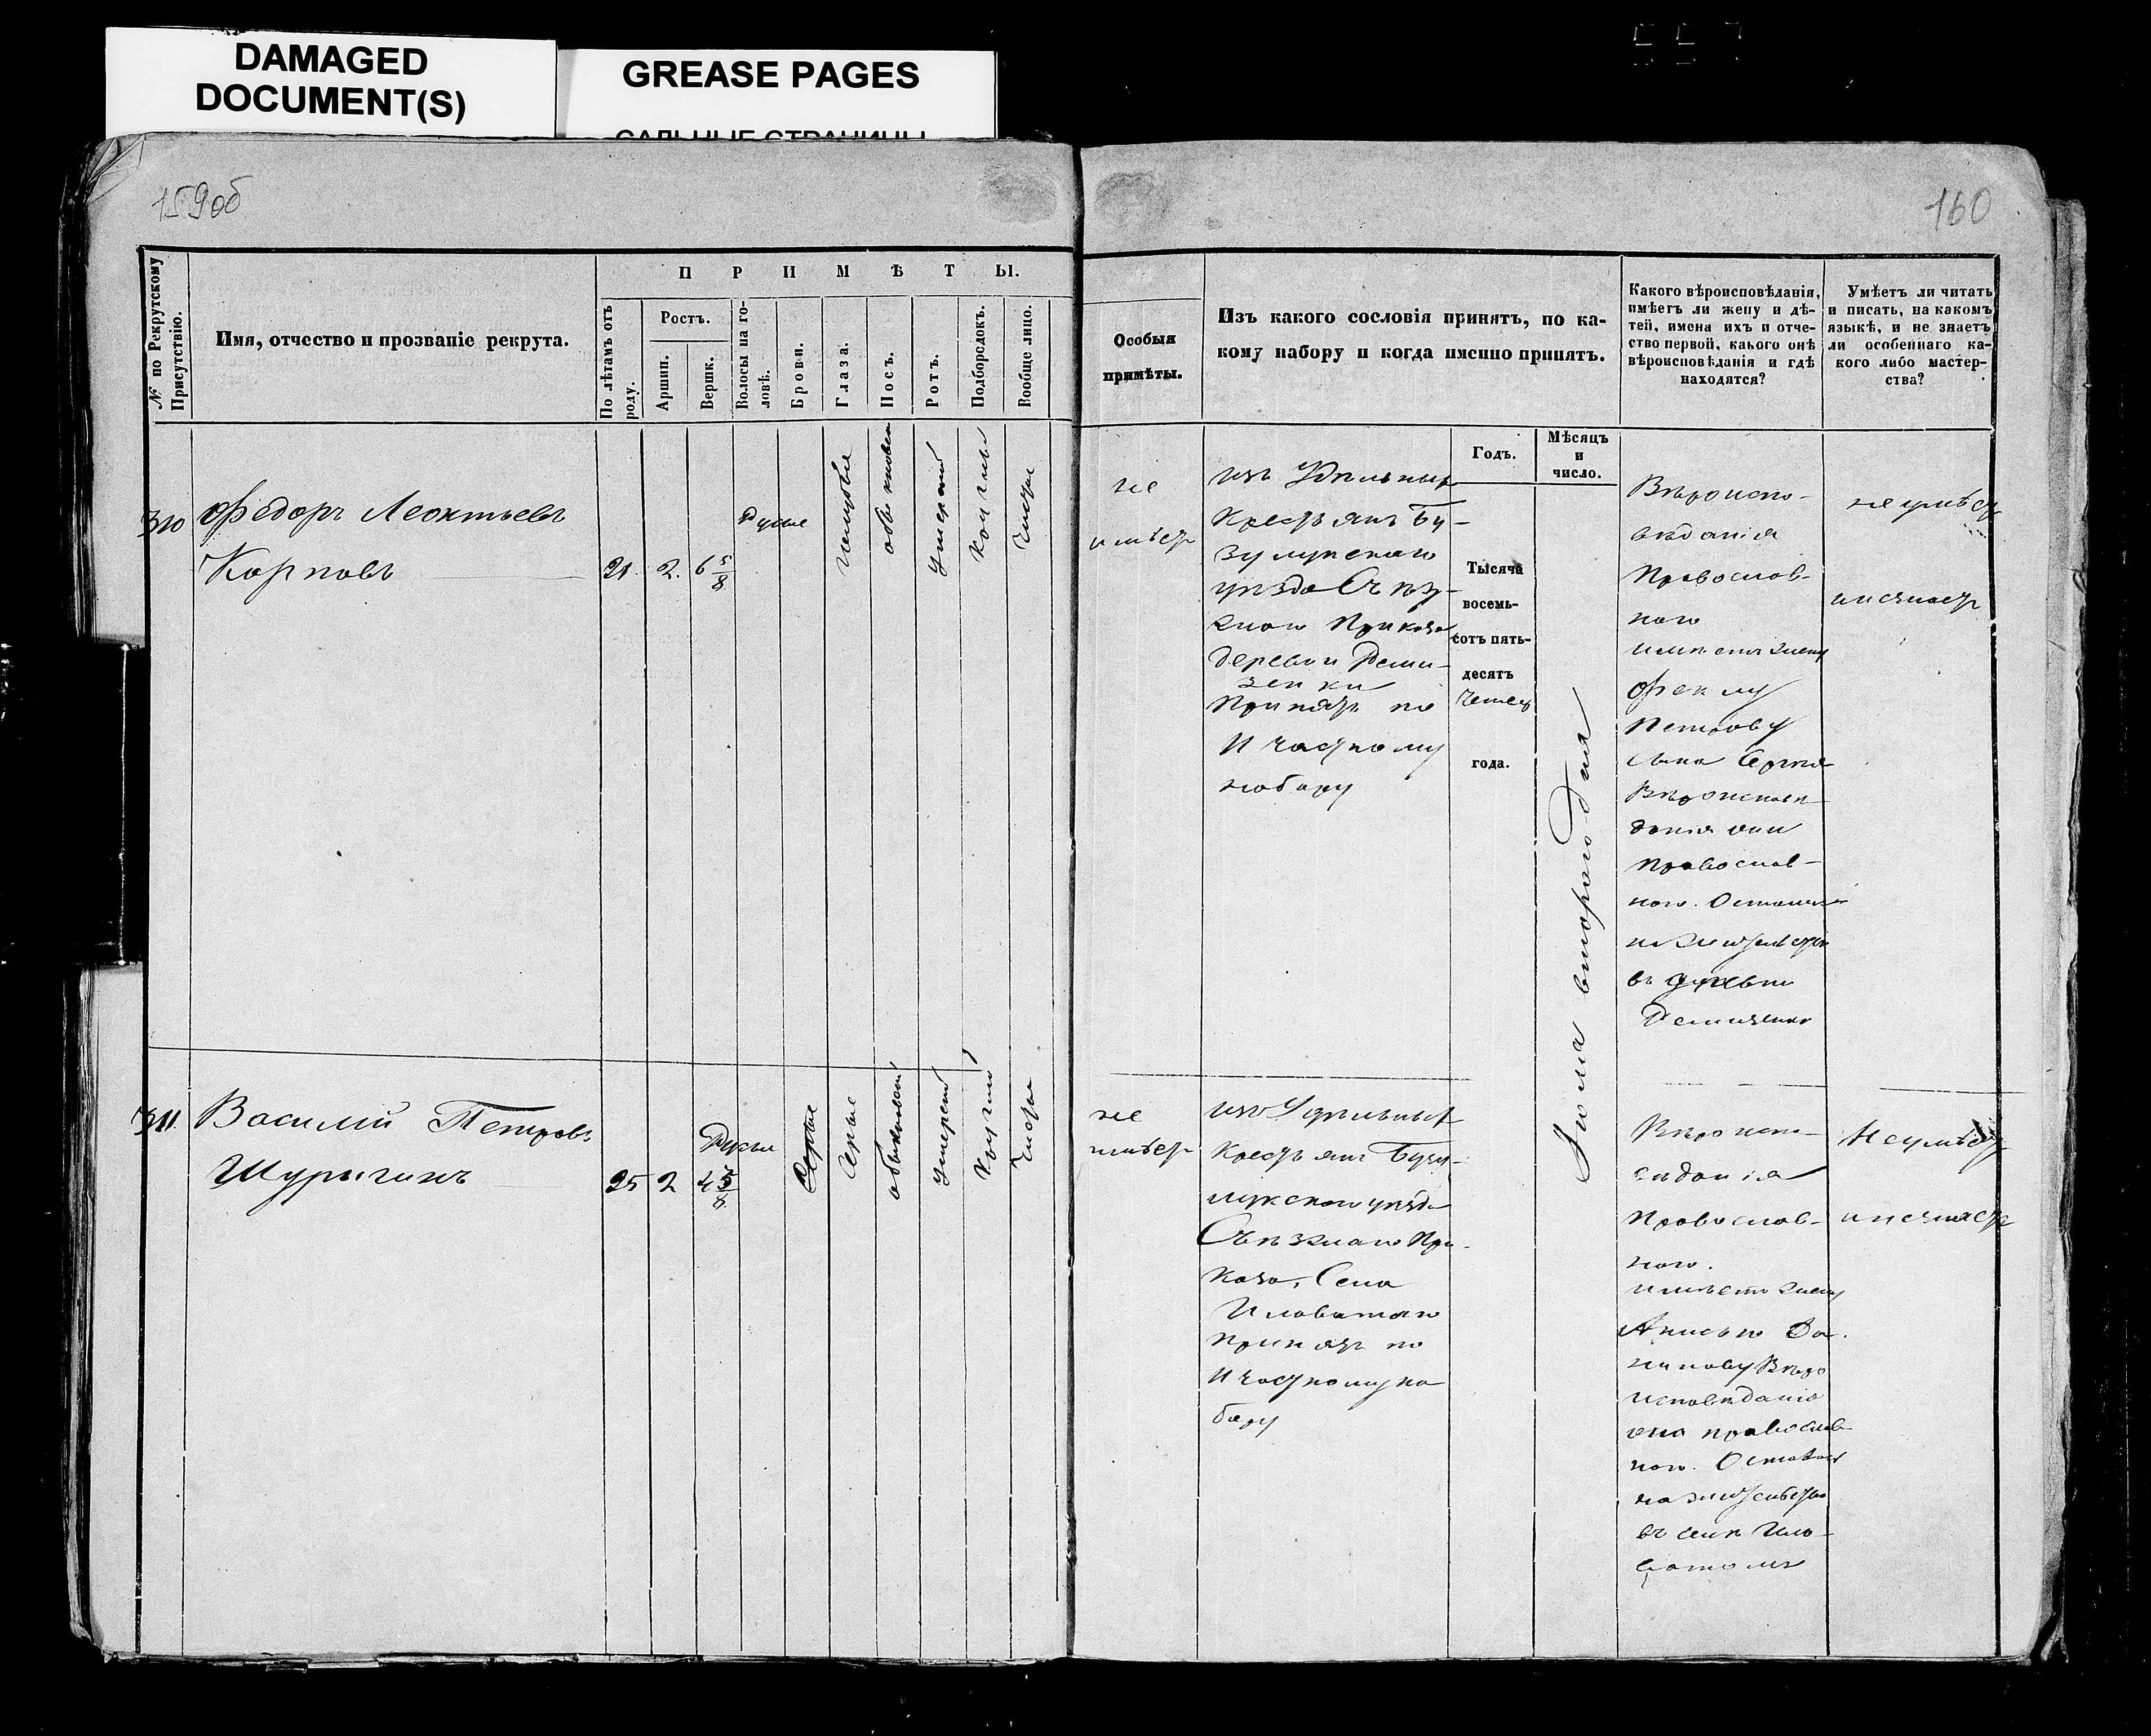 DAMAGED
DOCUMENT(S)
GREASE PAGES
САЛЬНЫЕ СТРАНИЦЫ
159об
160
№ по Рекрутскому
Присутствію.
Имя, отчество и прозваніе рекрута.
ПРИМѢТЫ.
По лѣтамъ отъ
роду.
Ростъ.
Аршин.
Вершк.
Волосы на го-
ловѣ.
Брови.
Глаза.
Носъ.
Ротъ.
Подбородокъ.
Вообще лицо.
Особыя
примѣты.
Изъ какого сословія принятъ, по ка-
кому набору и когда именно принятъ.
Какого вѣроисповѣданія,
имѣетъ ли жену и дѣ-
тей, имена ихъ и отче-
ство первой, какого онѣ
вѣроисповѣданія и гдѣ
находятся?
Умѣетъ ли читать
и писать, на какомъ
языкѣ, и не знаетъ
ли особеннаго ка-
кого либо мастер-
ства?
Годъ.
Мѣсяцъ
и
число.
310
Федоръ Леонтьевъ
Карповъ
21.
2.
6 5/8
Русые
обыкновен
Умерен
Круглый
Чистое
не
имѣетъ
изъ Удѣльныхъ
Крестьянъ Бу-
зулукскаго
уѣзда Съѣз-
жаго Приказа
деревни Реми-
зенки
Принятъ по
И частному
набору
Тысяча
восемь-
сотъ пять-
десятъ
Четвер
года.
Іюля втораго дня
Вѣроиспо-
вѣданія
Православ-
наго
имѣетъ жену
Феклу
Петрову
Сына Сергѣя
Вѣроисповѣ-
данія они
Православ-
наго. Остались
на жительствѣ
въ деревни
Ремизенкѣ
не умѣетъ
и не знаетъ
311
Василій Петровъ
Шурыгинъ
25
2
4 5/8
Русые
Серые
Серые
обыкновенной
Умерен
Круглый
Чистое
не
имѣетъ
изъ Удѣльныхъ
Крестьянъ Бузу-
лукскаго уѣзда
Съѣзжаго При-
каза, Села
Иловатаго
Принятъ по
И частному на
бору
Вѣроиспо-
вѣданія
Православ-
наго.
имѣетъ жену
Анисью Да-
нилову Вѣро
исповѣданія
она православ-
наго. Осталась
на жительствѣ
въ селѣ Ило-
ватомъ
Не умѣетъ
и не знаетъ